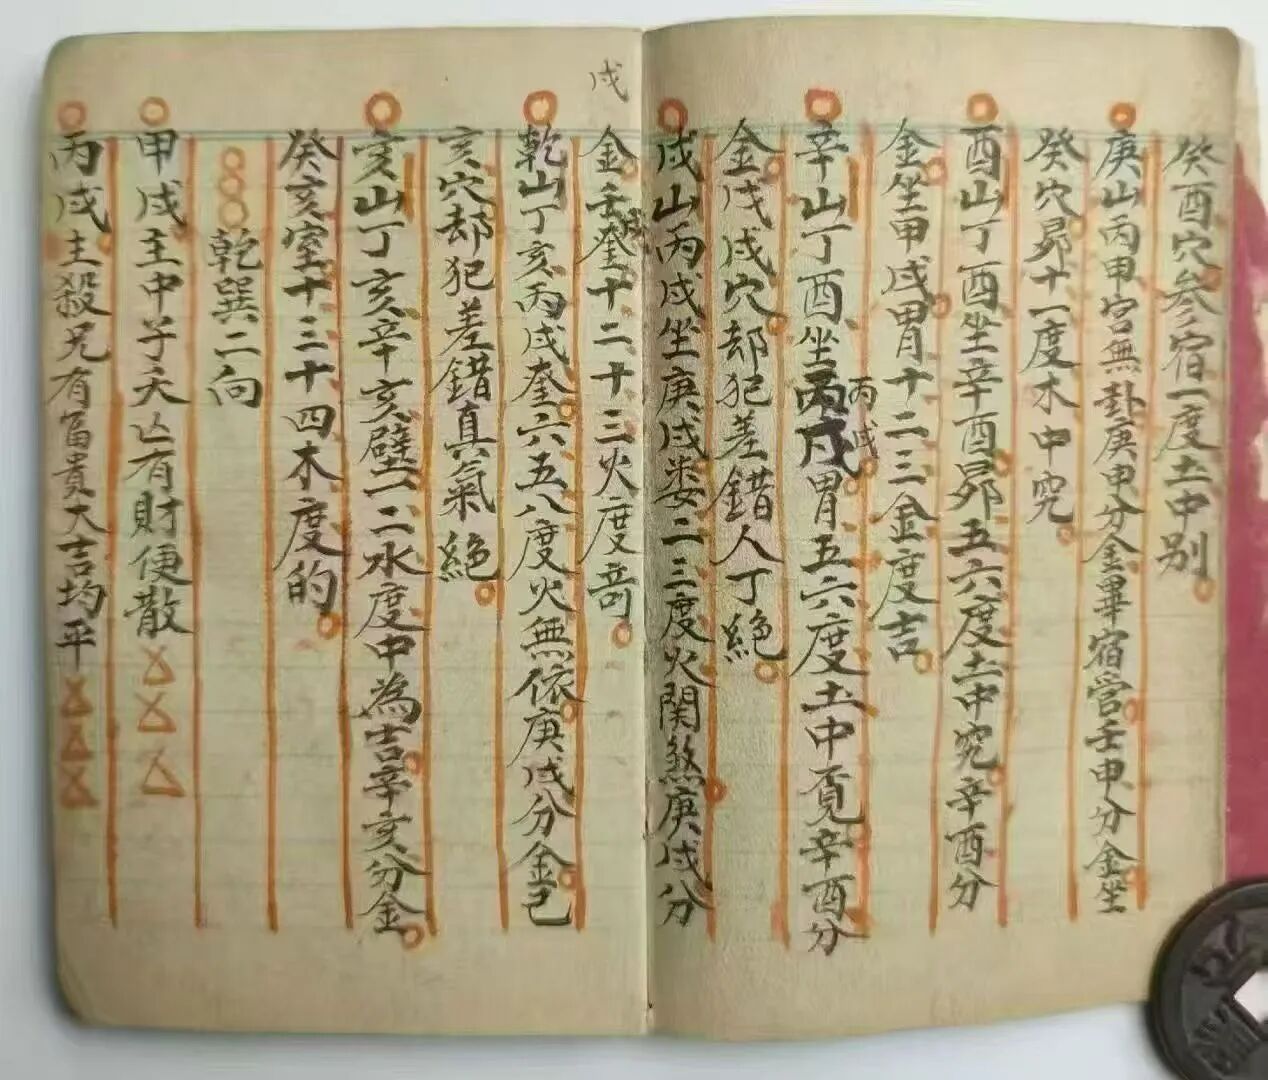 癸酉穴參宿一度土中别
庚山丙甲宫無卦庚申分金畢宿营壬申分金坐
癸穴昴十一度木中究
酉山丁酉坐辛酉昴五六度土中究辛酉分
金坐甲戌胃十二三金度吉
辛山丁酉坐丙戌胃五六度土中覓辛酉分
丙戌
金戌戌穴却犯差錯人丁絕
戌山丙戌坐庚戌娄二三度火関煞庚戌分
戌
金壬戌奎十二十三火度奇
乾山丁亥丙戌奎六五八度火無依庚戌分金己
亥穴却犯差錯真氣絕
亥山丁亥辛亥壁一二水度中為吉辛亥分金
癸亥室十三十四木度的
乾巽二向
甲戌主中子夭亾有財便散
丙戌主殺兄有富貴大吉均平